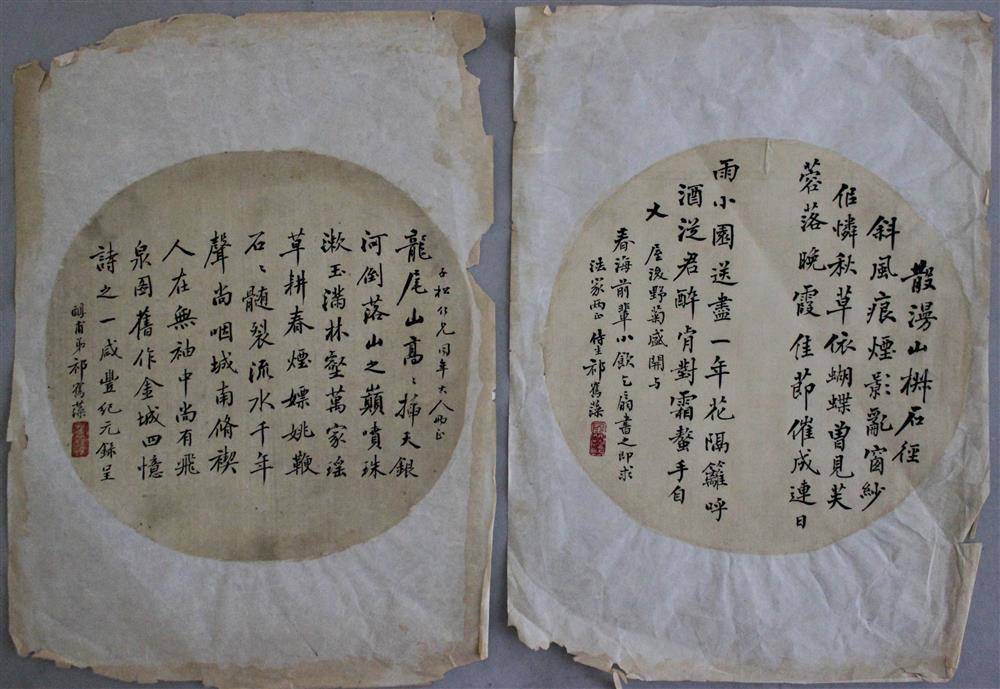 散漫山椒石徑
斜風痕煙影亂窗紗
但憐秋草依蝴蝶曾見芙
蓉落晚霞佳節催成連日
雨小園送盡一年花隔籬呼
酒從君醉肯對霜螯手自
叉 屋後野菊盛開与
春海前輩小飲乞扇書之即求
法家兩正 侍生祁寯藻
龍尾山高〻掃天銀
河倒落山之巔噴珠
漱玉滿林壑萬家瑤
草耕春煙嫖姚鞭
石〻髓裂流水千年
聲尚咽城南脩禊
人在無袖中尚有飛
泉圖舊作金城四憶
詩之一咸豐紀元錄呈
子松仁兄同年大人兩正
弟祁寯藻